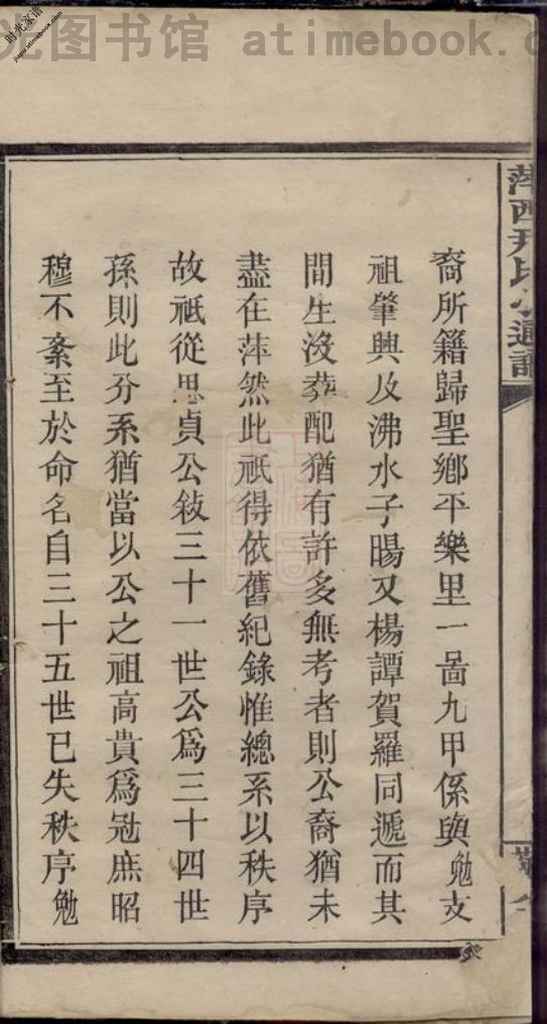 光图书馆 atimebook.c
时光家谱
萍西尹氏小通譜
裔所籍歸聖鄉平樂里一啚九甲係與勉支
祖肇興及沸水子暘又楊譚賀羅同遞而其
間生沒葬配猶有許多無考者則公裔猶未
盡在萍然此祇得依舊紀錄惟總系以秩序
故祇從思貞公敍三十一世公爲三十四世
孫則此分系猶當以公之祖高貴爲冠庶昭
穆不紊至於命名自三十五世已失秩序勉